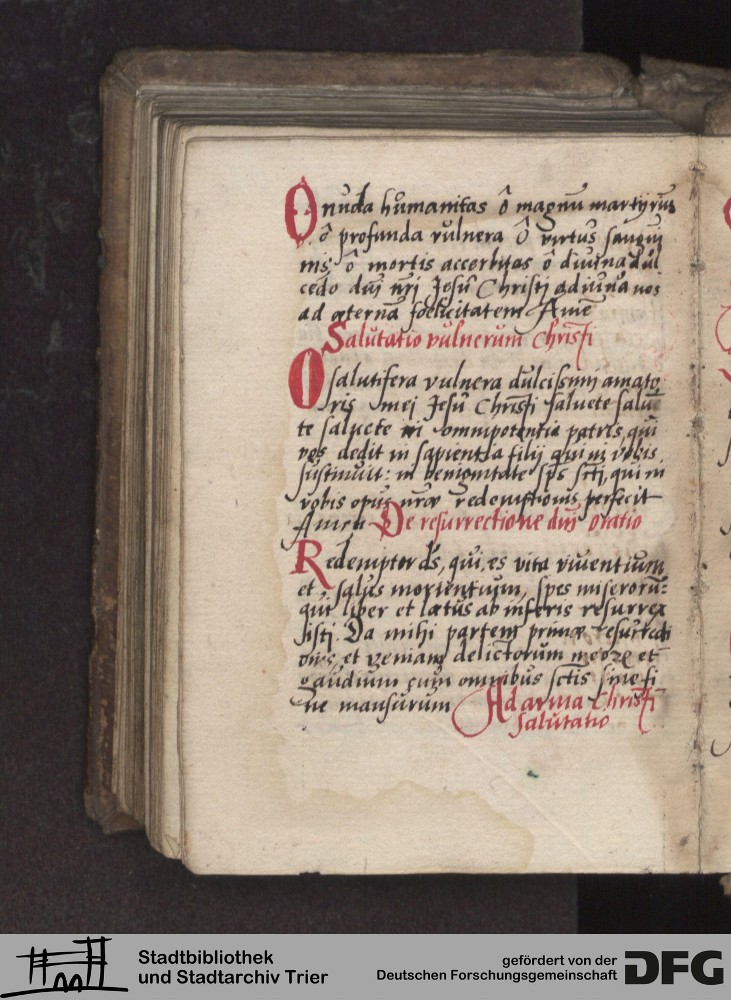 O nuda humanitas ô magnū martyriū
ô profunda vulnera ô virtus sangui
nis, ô mortis accerbitas ô diuina dul
cedo dn̄i nr̄i Jesu Christi adiuua nos
ad æternā foelicitatem Amē
Salutatio vulnerum Christi
O salutifera vulnera dulcissimi amato
ris mei Jesu Christi saluete salu
te saluete in omnipotentia patris, qui
vos dedit in sapientia filij qui in vobis
sustinuit: in benignitate sp̄s sc̄ti, qui in
vobis opus nr̄æ redemptionis perfecit
Amen De resurrectione dn̄i oratio
Redemptor ds, qui es vita viuentium
et salus morientium, spes miserorū:
qui liber et lætus ab inferis resurrex
isti, Da mihi partem primæ resurrecti
onis, et veniam delictorum meoꝝ et
gaudium cum omnibus sc̄tis sine fi
ne mansurum Ad arma Christi
salutatio
Stadtbibliothek
und Stadtarchiv Trier
gefördert von der
Deutschen Forschungsgemeinschaft
DFG